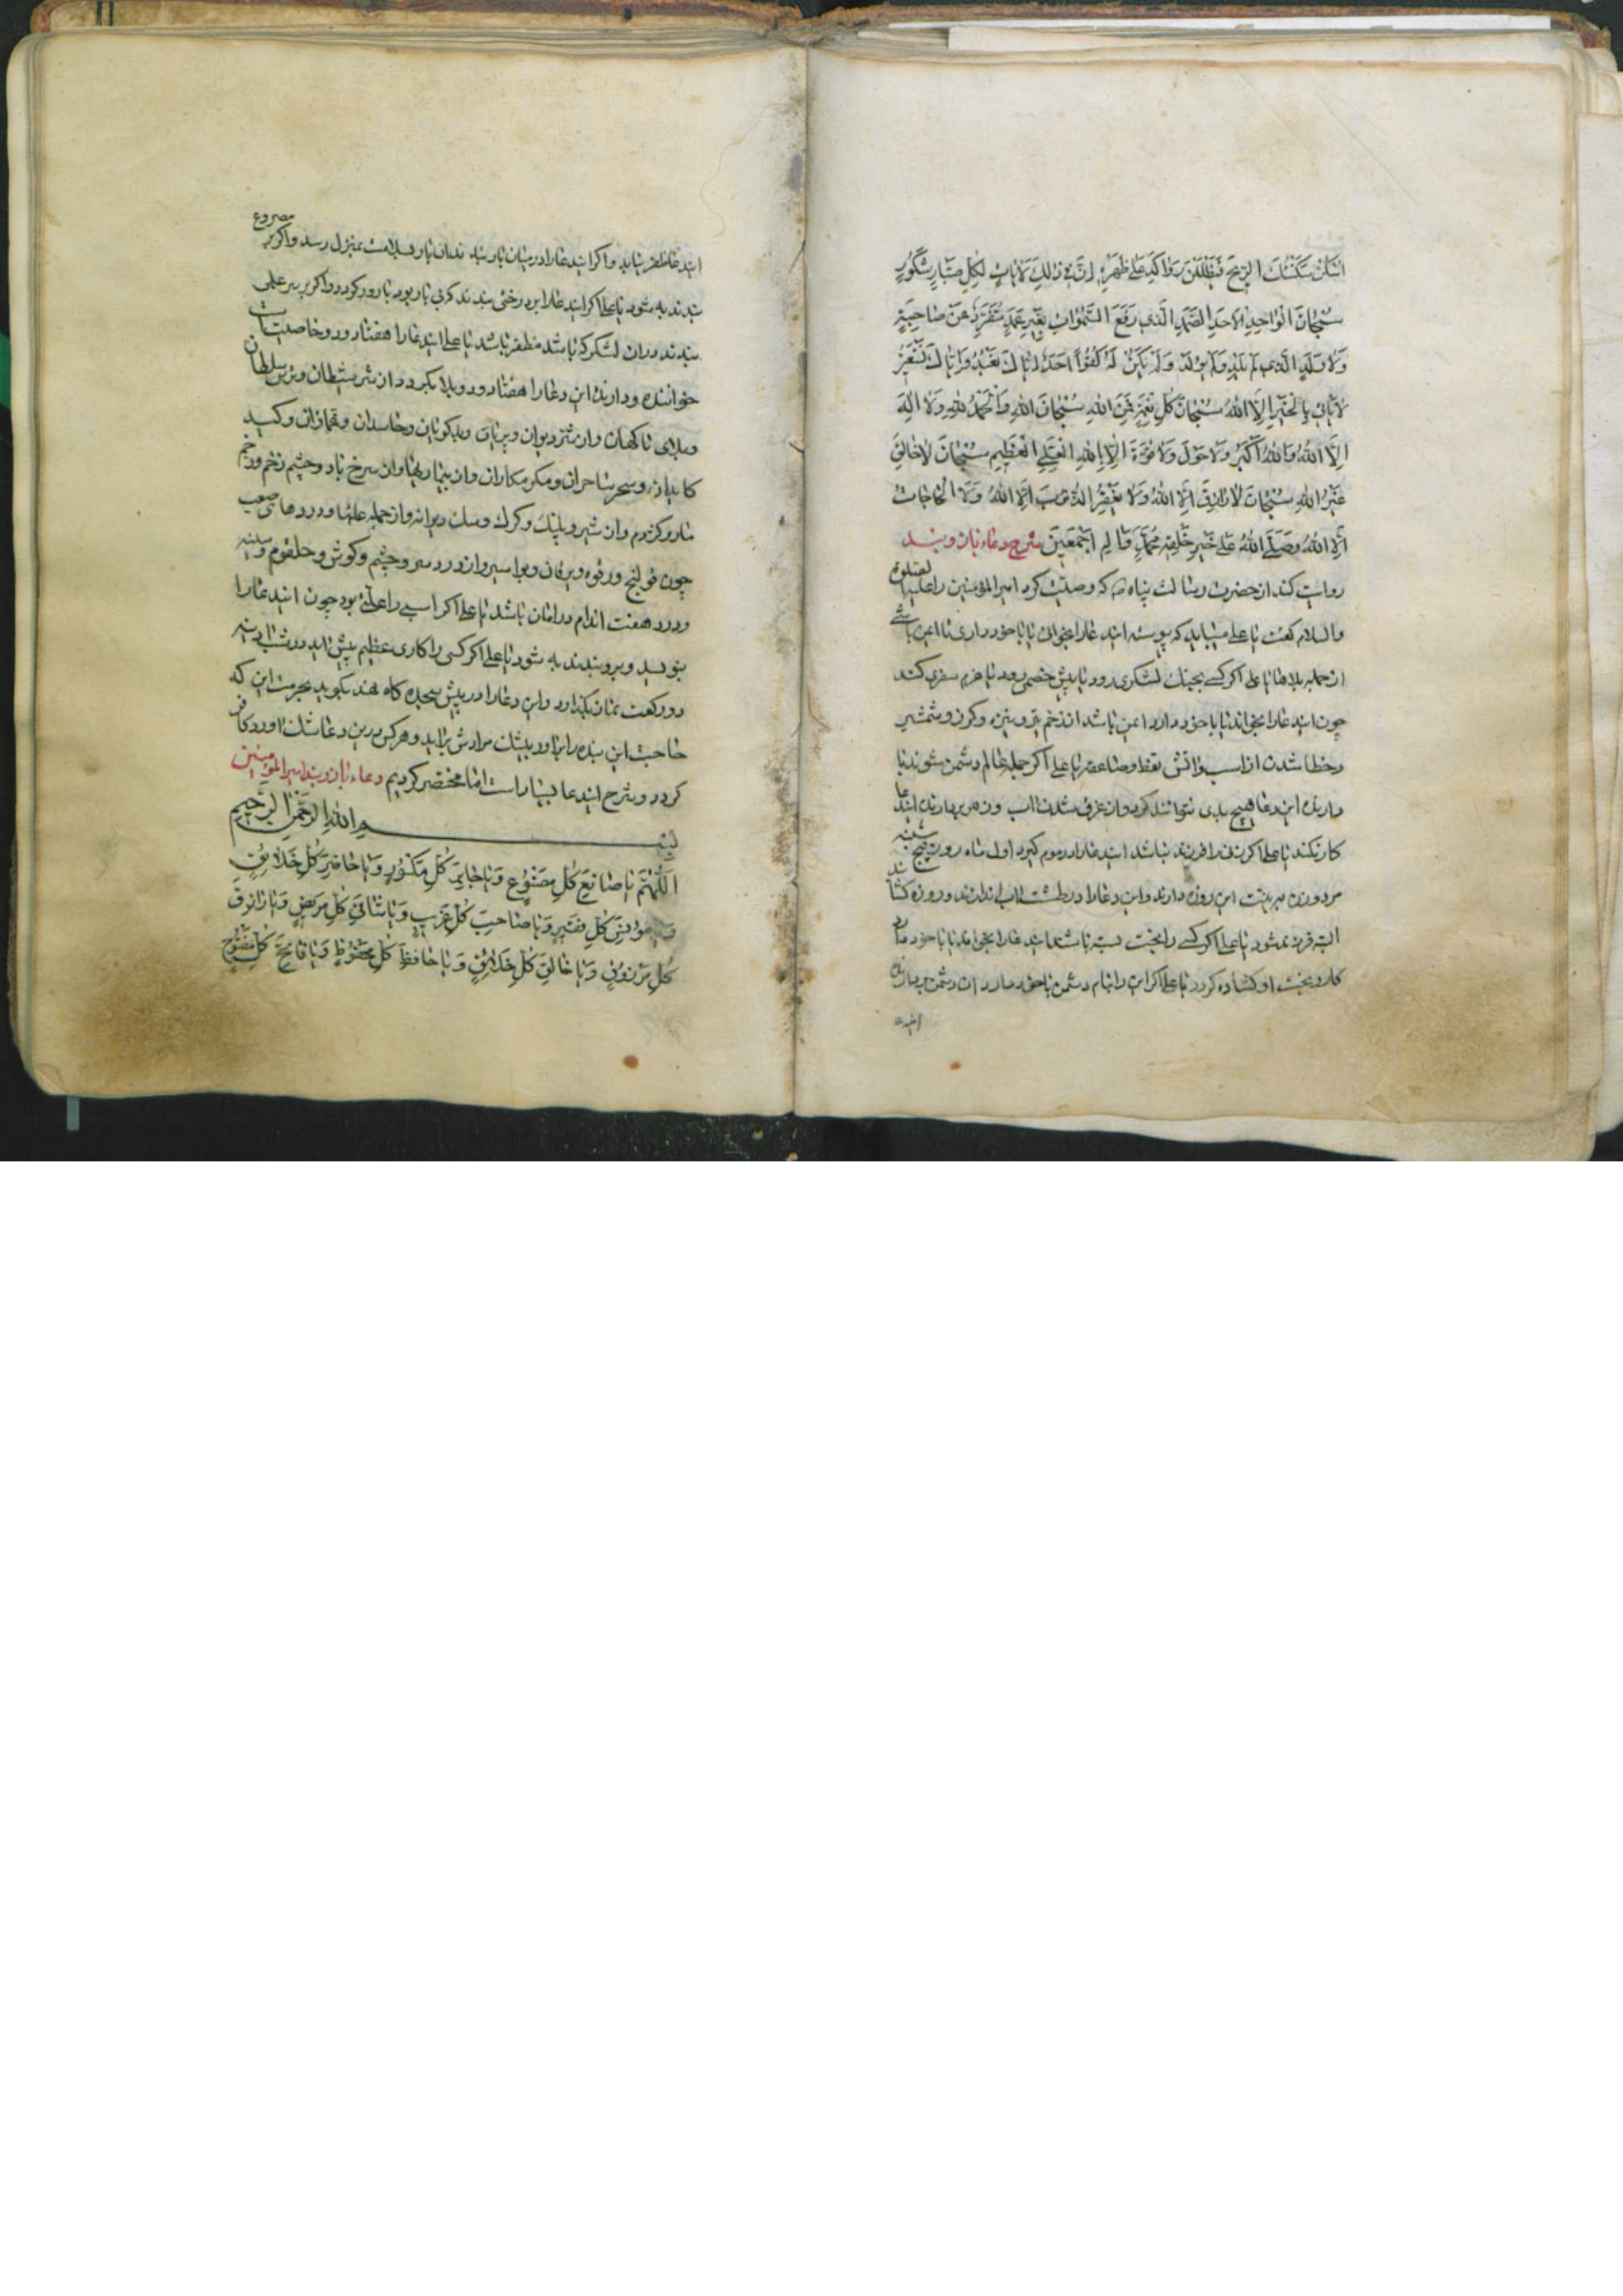 اسکن سکنت الریح فیظللن رواکد علی ظهره ان فی ذلک لایات لکل صبار شکور
سبحان الواحد الاحد الصمد الذی رفع السموات بغیر عمد متفرد عن صاحبة
ولا ولد الذی لم یلد ولم یولد ولم یکن له کفوا احد ایاک نعبد وایاک نستعین
لا یاتی بالخیر الا الله سبحان کل نعمة فمن الله سبحان الله والحمد لله ولا اله
الا الله والله اکبر ولا حول ولا قوة الا بالله العلی العظیم سبحان لا خالق
غیر الله سبحان لا رازق الا الله ولا یغفر الذنوب الا الله ولا الحاجات
الا الله وصلی الله علی خیر خلقه محمد واله اجمعین شرح دعاء بازوبند
روایت کند از حضرت رسالت پناه ص که وصیت کرد امیر المؤمنین را علیه الصلوة
والسلام کفت یا علی میباید که پیوسته ایندعا را بخوانی یا با خود داری تا ایمن باشی
از جمله بلاها یا علی اکر کسی بجنک لشکری رود یا پیش خصمی رود یا عزم سفری کند
چون ایندعا را بخواند یا با خود دارد ایمن باشد از زخم تیر و نیزه و کرز و شمشیر
و خطا شدن از اسب و اتش نفط و صاعقه یا علی اکر جمله عالم دشمن شوند با
دارنده این دعا هیچ بدی نتوانند کرد و از غرق شدن اب و زهر بدارنده ایندعا
کار نکند یا علی اکر زنی را فرزند نباشد ایندعا را در موم کیرد اول ماه روز پنج شنبه
مرد و زن بدین نیت این روزه دارند و این دعا را در طشت اب اندازند و روزه کشایند
البته فرزند شود یا علی اکر کسی را بخت بسته باشد ایندعا را بخواند یا با خود دارد
کار و بخت او کشاده کردد یا علی اکر این را بنام دشمن با خود دارد ان دشمن بر دارنده
ایندعا
ایندعا ظفر نیابد و اکر ایندعا را در میان بار نهد ان بار بسلامت بمنزل رسد و اکر بر مصروع
بندند به شود یا علی اکر ایندعا را بر درختی بندند که بی بار بود بارور کردد و اکر بر سر علمی
بندند دران لشکر که باشد مظفر باشد یا علی ایندعا را هفتاد و دو خاصلیت است
خواننده و دارنده این دعا را هفتاد و دو بلا بکردد از شر شیطان و ترس سلطان
و بلای ناکهان و از شر دیوان و پریان و بدکویان و حاسدان و غمازان و کید
کایدان و سحر ساحران و مکر مکاران و از بیماریها و از سرخ باد و چشم زخم و زخم
مار و کژدم و از شیر و پلنک و کرک و سک دیوانه و از جمله علتها و دردها صعب
چون قولنج و رقوه و یرقان و بواسیر و از درد سر و چشم و کوش و حلقوم و سینه
و درد هفت اندام در امان باشد یا علی اکر اسبی را علتی بود چون ایندعا را
بنویسد و برو بندند به شود یا علی اکر کسی را کاری عظیم پیش اید در شب ادینه
دو رکعت نماز بکذارد و این دعا را در پیش سجده کاه نهد بکوید بحرمت این که
حاجت این بنده را براور بیشک مرادش براید و هر کس درین دعا شک اورد کافر
کردد و شرح ایندعا بسیار است اما مختصر کردیم دعاء بازوبند امیر المؤمنین
بسم الله الرحمن الرحیم
اللهم یا صانع کل مصنوع ویا جابر کل مکسور ویا حاضر کل خلائق
ویا مونس کل فقیر ویا صاحب کل غریب ویا شافی کل مریض ویا رازق
کل مرزوق ویا خالق کل خلائق ویا حافظ کل محفوظ ویا فاتح کل مفتوح